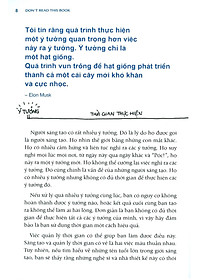 8 DON'T READ THIS BOOK
Tôi tin rằng quá trình thực hiện
một ý tưởng quan trọng hơn việc
nảy ra ý tưởng. Ý tưởng chỉ là
một hạt giống.
Quá trình vun trồng để hạt giống phát triển
thành cả một cái cây mới khó khăn
và cực nhọc.
– Elon Musk
Ý TƯỞNG
THỜI GIAN THỰC HIỆN
Người sáng tạo có rất nhiều ý tưởng. Đó là lý do họ được gọi
là người sáng tạo. Họ nhìn thế giới bằng những con mắt khác.
Họ có nhiều cảm hứng và liên tục nghĩ ra các ý tưởng. Họ có thể
suy nghĩ mọi lúc mọi nơi, từ một ngày dài này qua khác và "Póc!", họ
nảy ra một ý tưởng mới. Họ không thể ngừng việc liên tục nghĩ ra các
ý tưởng. Đó cũng chính là vấn đề của những người sáng tạo. Họ không
có đủ thời gian để thực hiện tất cả các ý tưởng đó.
Nếu sở hữu quá nhiều ý tưởng cùng lúc, bạn có nguy cơ không
hoàn thành được ý tưởng nào, hoặc kết quả cuối cùng bạn tạo
ra không thể làm ai hài lòng. Đơn giản là bạn không có đủ thời
gian để thực hiện tất cả các ý tưởng của mình, vì vậy hãy đảm
bảo là bạn sử dụng thời gian một cách hiệu quả.
Việc quản lý thời gian có thể giúp bạn đạt được điều này.
Sáng tạo và quản lý thời gian có vẻ là hai việc mâu thuẫn nhau.
Tuy nhiên, nếu tìm hiểu về những tên tuổi lớn trong giới sáng
tạo, bạn sẽ thấy rằng những nghệ sĩ và nhà thiết kế này có